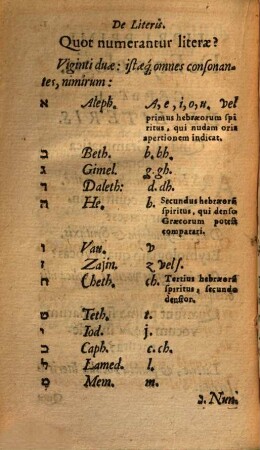 De Literis.
Quot numerantur literæ?
Viginti duæ: istæq́; omnes consonan-
tes, nimirum:
א Aleph. A, e, i, o, u, vel
primus hebræorum spi
ritus, qui nudam oris
apertionem indicat.
ב Beth. b, bh.
ג Gimel. g. gh.
ד Daleth: d. dh.
ה He. h. Secundus hebræorū
spiritus, qui denso
Græcorum potest
comparari.
ו Vau. v
ז Zajin. z vel s.
ח Cheth. ch. Tertius hebræorū
spiritus, secundo
densior.
ט Teth. t.
י Iod. j.
כ Caph. c. ch.
ל Lamed. l.
מ Mem. m.
נ. Nun.